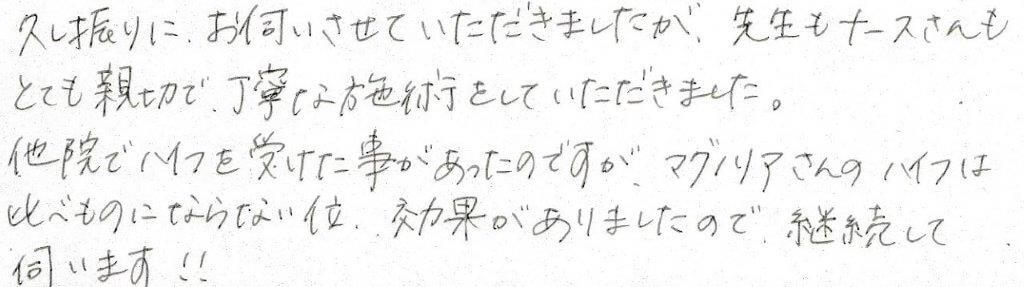 久し振りに、お伺いさせていただきましたが、先生もナースさんも
とても親切で、丁寧な施術をしていただきました。
他院でハイフを受けた事があったのですが、マグノリアさんのハイフは
比べものにならない位、効果がありましたので、継続して
伺います!!